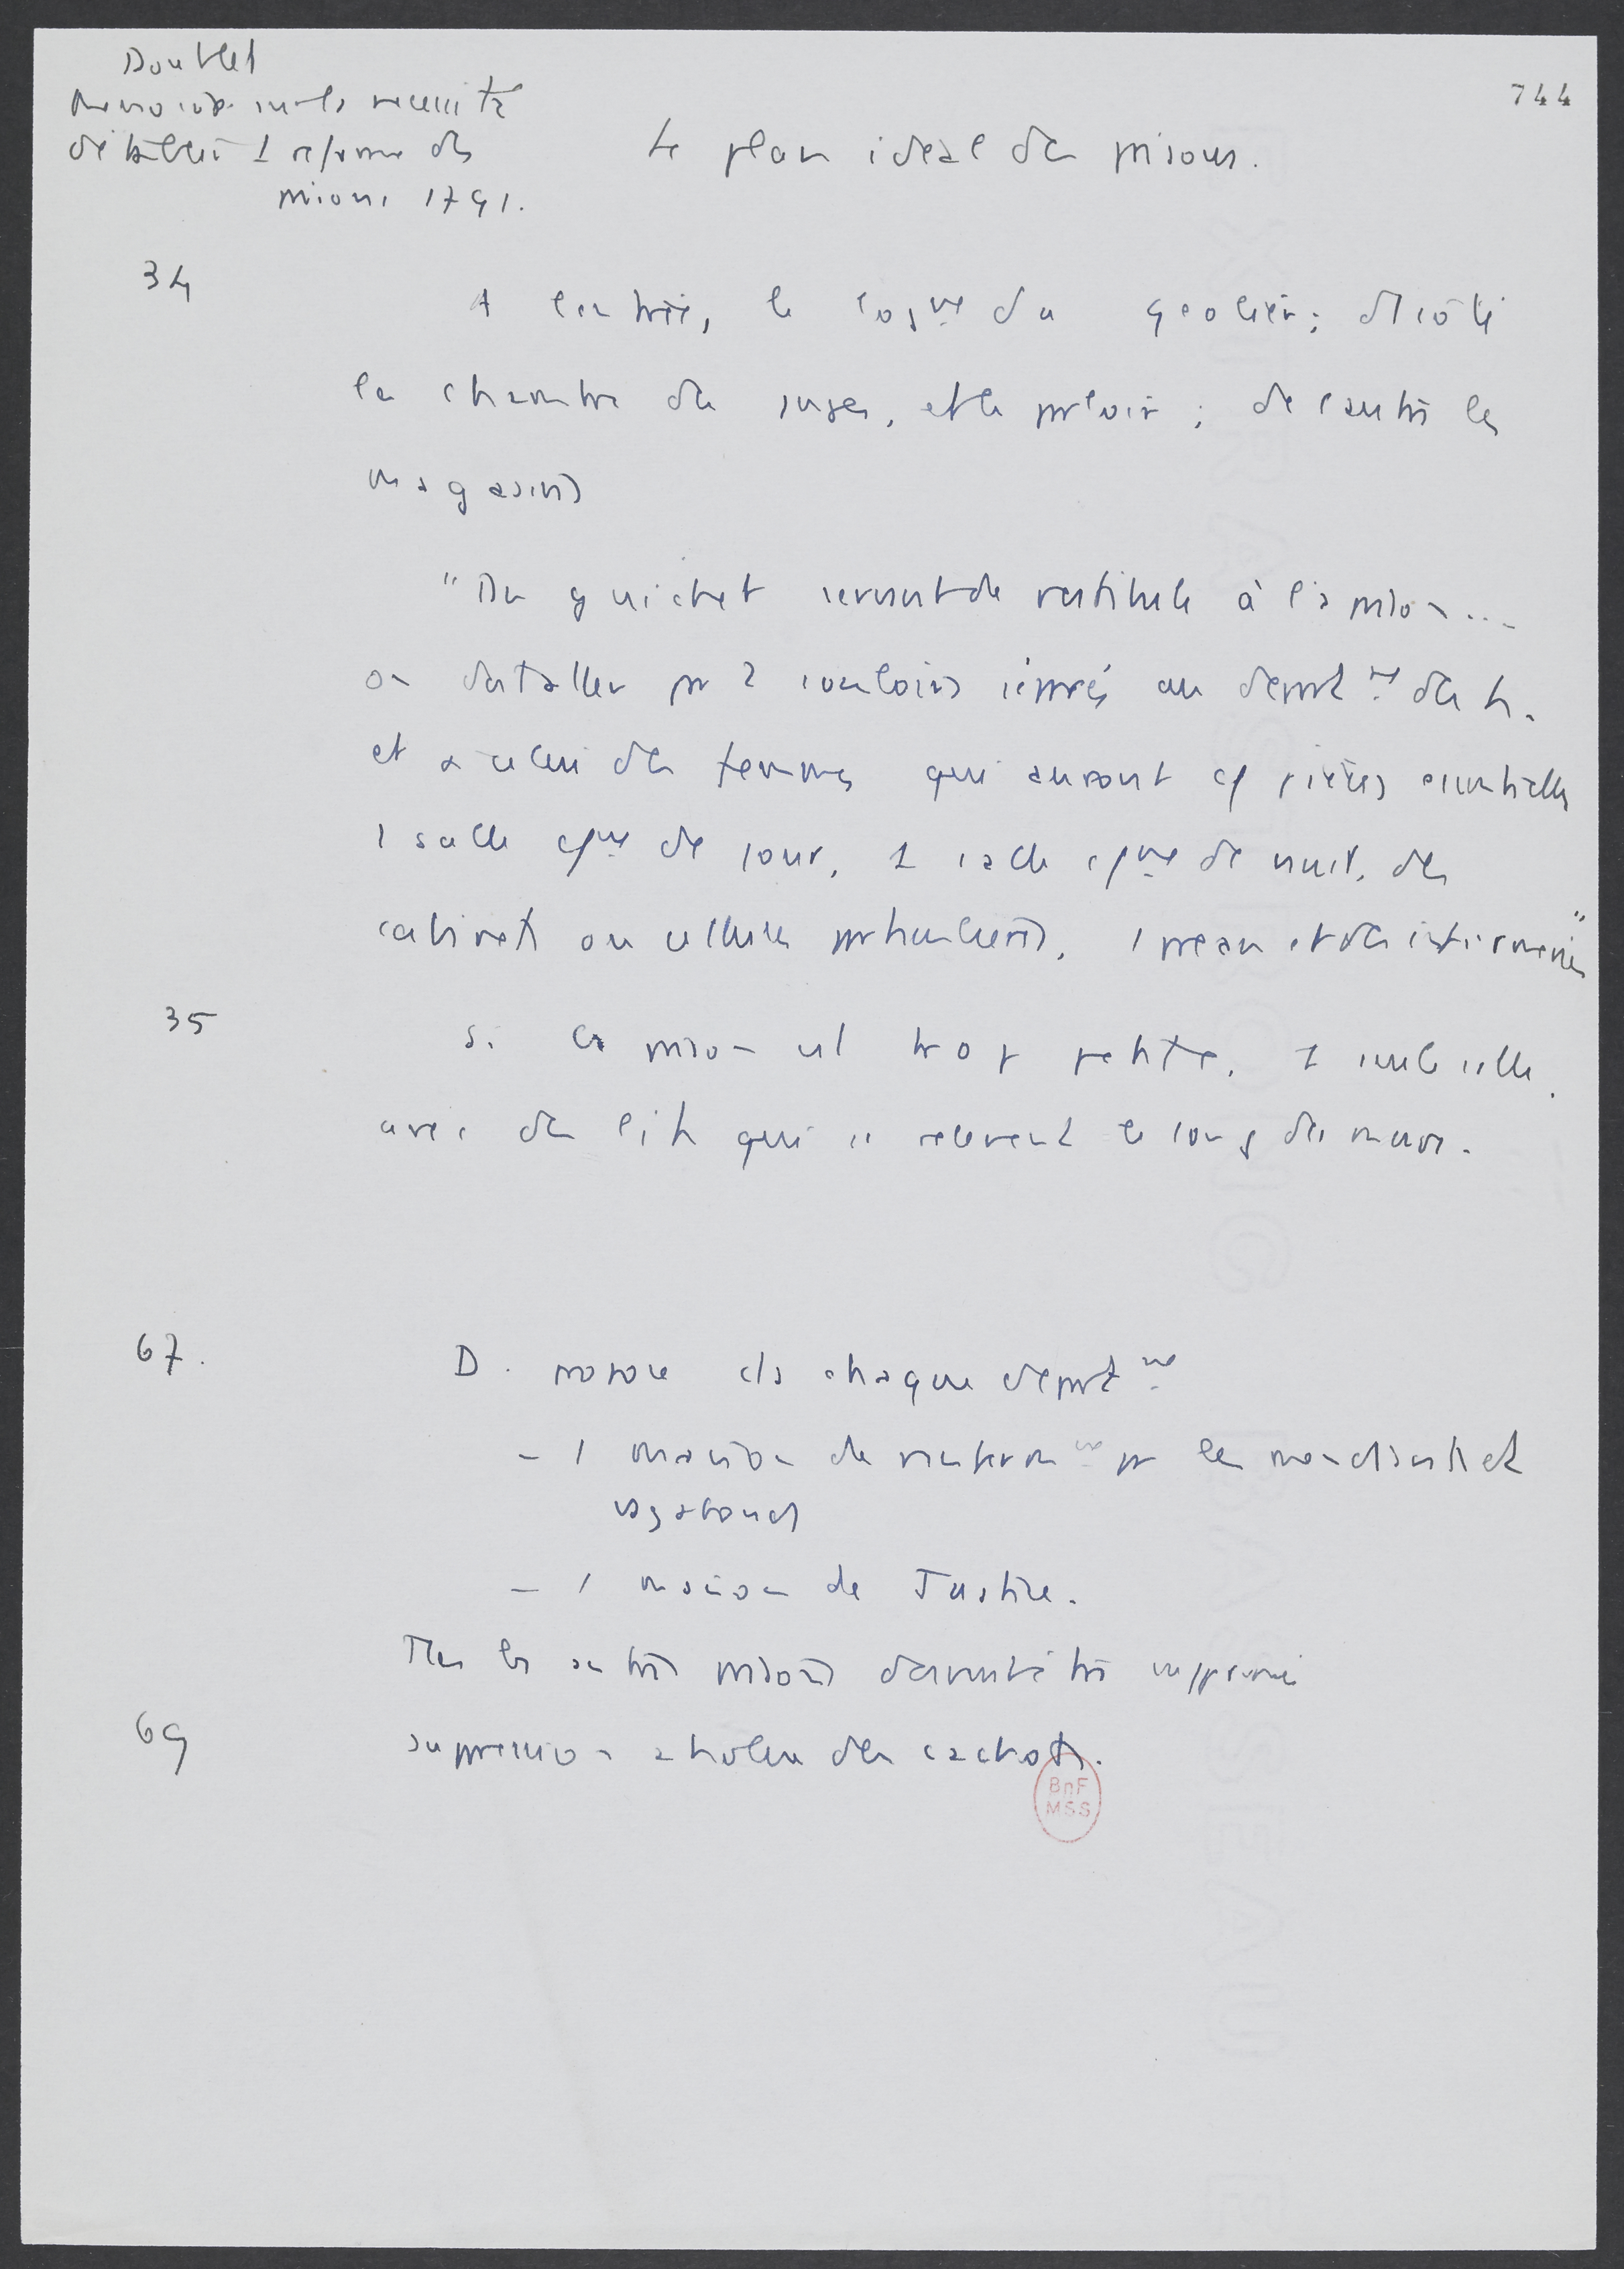 Doublet
Mémoire sur la nécessité
d'établir 1 réforme des
prisons 1791.
744
Le plan idéal des prisons.
34
A l'entrée, le logmt du geolier ; d'1 côté
la chambre des juges, et le parloir ; de l'autre les
magasins
"Du guichet servant de vestibule à la prison...
on doit aller par 2 couloirs séparés au départmt des h.
et à celui des femmes qui auront cō pièces essentielles
1 salle cōmne de jour, 1 salle cōmne de nuit, des
cabinets ou cellules particulières, 1 préau et des infirmeries"
35
Si la prison est trop petite, 1 seule salle,
avec des lits qui se relèvent le long des murs.
67.
D. propose ds chaque départmt
- 1 maison de renfermmt pr les mendiants et
vagabonds
- 1 maison de Justice.
Ttes les autres prisons devant être supprimé
69
suppression absolue des cachots.
BnF
MSS